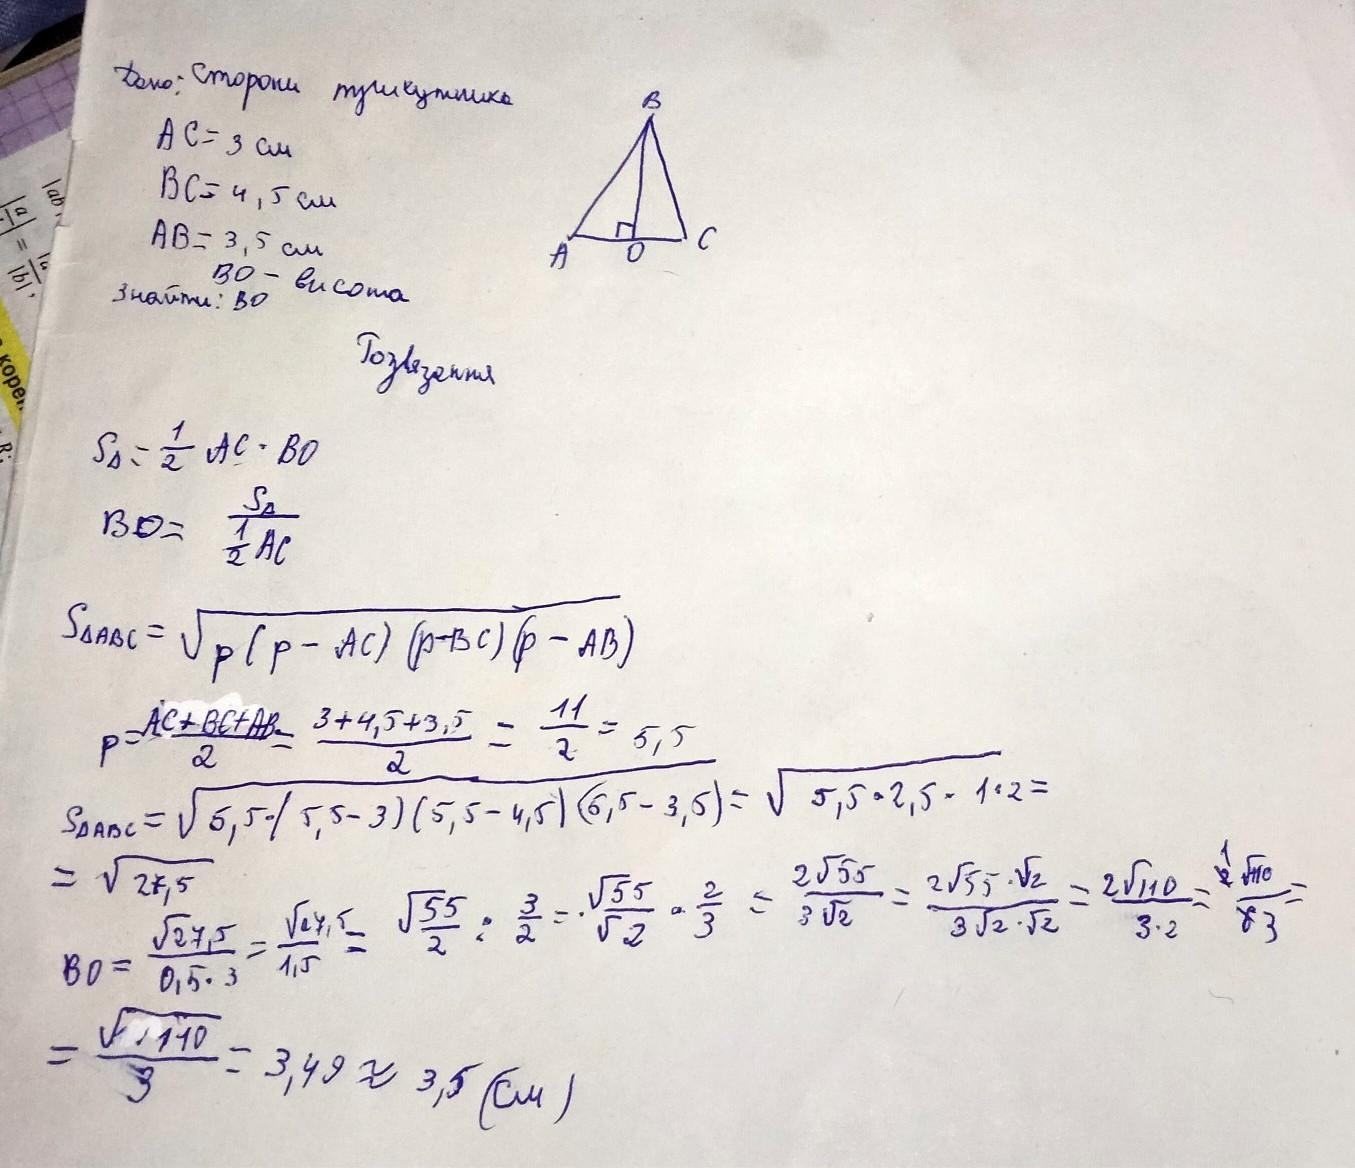 Дано: Сторони трикутника
AC = 3 см
BC = 4,5 см
AB = 3,5 см
BO - висота
Знайти: BO
B
A O C
Розвязання
S△ = 1/2 AC · BO
BO = S△ / (1/2 AC)
S△ABC = √p(p - AC)(p-BC)(p - AB)
p = (AC+BC+AB)/2 = (3+4,5+3,5)/2 = 11/2 = 5,5
S△ABC = √5,5·(5,5-3)(5,5-4,5)(5,5-3,5) = √5,5·2,5·1·2 =
= √27,5
BO = √27,5/(0,5·3) = √27,5/1,5 = √55/2 : 3/2 = √55/√2 · 2/3 = 2√55/3√2 = 2√55·√2/3√2·√2 = 2√110/3·2 = √110/3 =
= √110/3 = 3,49 ≈ 3,5 (см)
корен